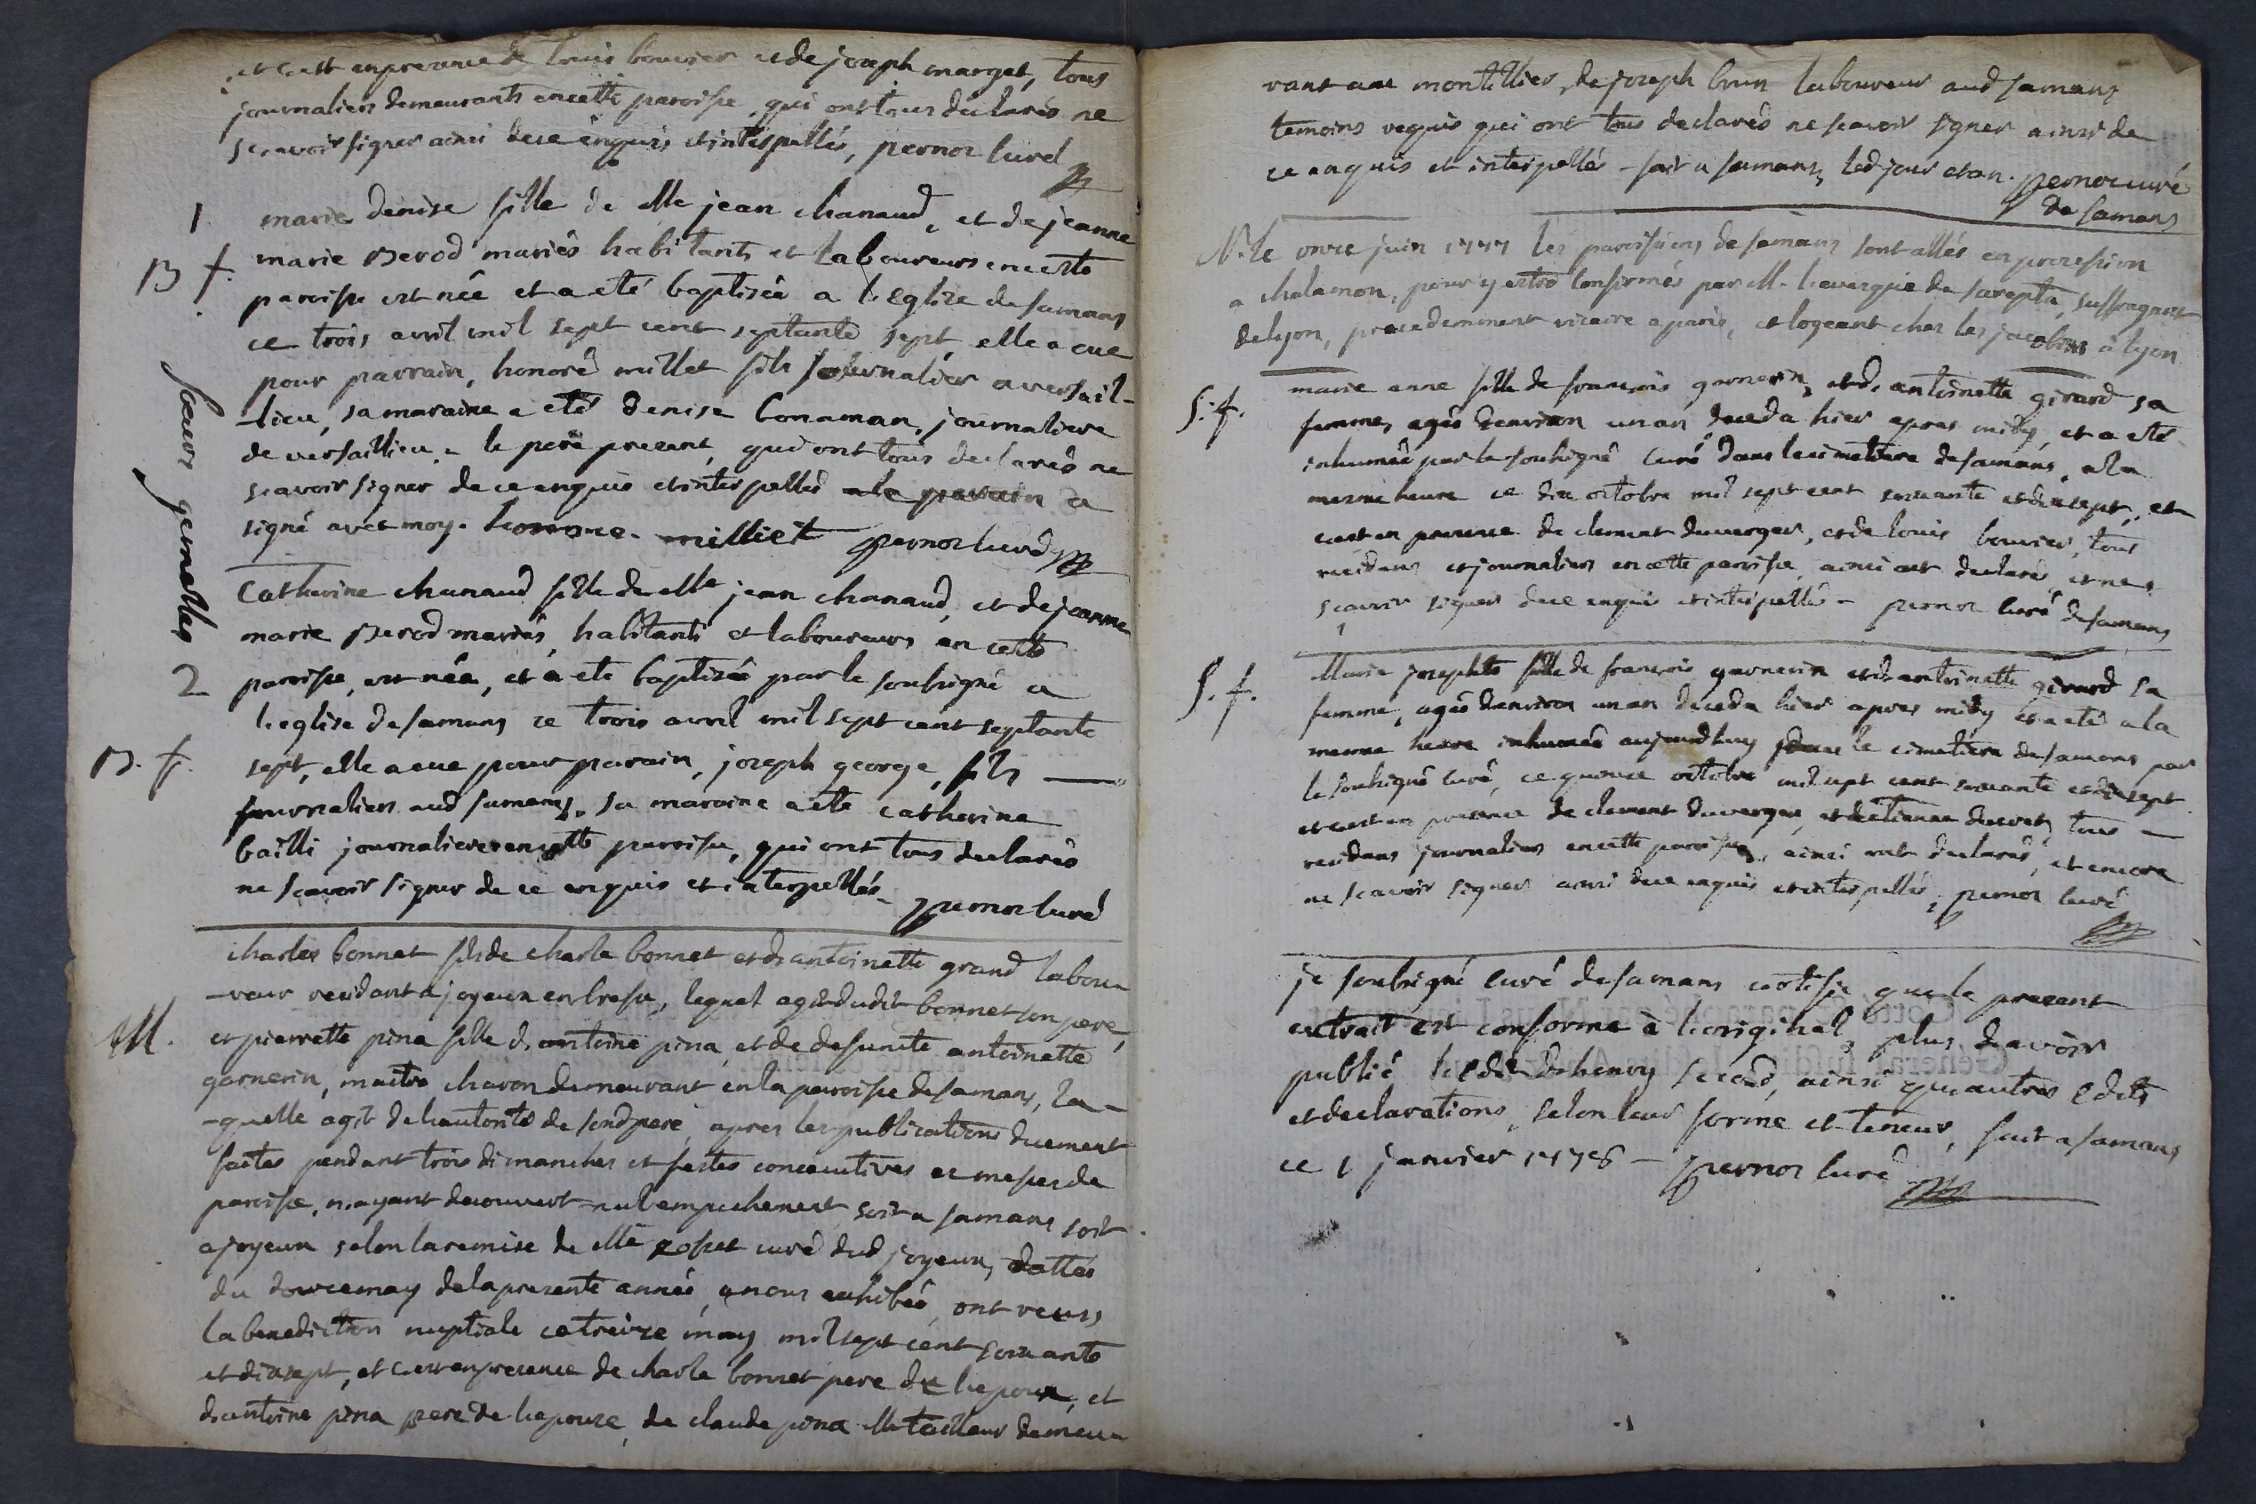 et cest enpresence de louis bouvier et de joseph marget, tous
journaliers demeurants encette paroisse, qui ont tous declarés ne
scavoir signer ainsi dece enquis et interpellés, pernoz curé
1 marie denise fille de Me jean chanaud, et de jeanne
B f. marie Berod mariés habitants et laboureurs encette
paroisse est née et a eté baptisée a l'eglise de samans
ce trois avril mil sept cent septante sept, elle a eue
pour parrain, honoré millet fils journalier a versail-
-lieu, sa maraine a eté denise Conaman, journaliere
de versaillieu, le pere present, qui ont tous declarés ne
scavoir signer de ce enquis et interpellés a
signé avec moy. honore. milliet pernoz curé
soeurs gemelles
Catherine chanaud fille de Me jean chanaud, et de jeanne
marie Berod mariés, habitants et laboureurs en cette
2 paroisse, est née, et a ete baptisée par le soubsigné a
l'eglise de samans ce trois avril mil sept cent septante
B. f. sept, elle a eue pour parain, joseph george, fils
journaliers aud samans, sa maraine a ete catherine
bailli journaliere encette paroisse, qui ont tous declarés
ne scavoir signer de ce enquis et interpellés pernoz curé
charles bonnet fils de charle bonnet et d'antoinette grand labou-
-reur residant a joyeux en bresse, lequel agit dudit bonnet son pere,
M. et pierrette pina fille d'antoine pina, et de defunte antoinette
garnerin, maitre charon demeurant en la paroisse de samans, la-
-quelle agit de l'autorité de sond pere, apres les publications duement
faites pendant trois dimanches et festes consecutives es messes de
paroisse, n'ayant decouvert nul empechement, soit a samans soit
a joyeux selon la remise de Me curé dud joyeux, dattée
du douze may de la presente année, a nous exhibée, ont reçus
la benediction nuptiale ce treize may mil sept cent soixante
et dixsept, et cest en presence de charle bonnet pere de l'epoux, et
d'antoine pina pere de l'epouze, de claude pina Me tailleur demeu-
rant au montellier, de joseph brun laboureur aud samans
temoins requis qui ont tous declarés ne scavoir signer ainsi de
ce enquis et interpellés - fait a samans, led jour et an. pernoz curé
de samans
N. le onze juin 1777 les paroissiens de samans sont allés en procession
a chalamon, pour y estre confirmés par M. l'evesque de sarepta, suffragant
de lyon, precedemment vicaire a paris, et logeant chez les jacobins à lyon
S. f. marie anne fille de francois garnerin, et d. antoinette girard sa
femme, agée d'environ un an deceda hier apres midy, et a eté
inhumée par le soubsigné Curé dans le cimetiere de samans, a la
mesme heure ce dix octobre mil sept cent soixante et dixsept, et
cest en presence de clement duverger, et de louis bouvier, tous
residans et journaliers en cette paroisse, ainsi ont declarés et ne
scavoir signer dece enquis et interpellés - pernoz curé de samans
S. f. Marie josephte fille de françois garnerin et d. antoinette girard sa
femme, agée d'environ un an deceda hier apres midy et a eté a la
mesme heure inhumée aujourdhuy dans le cimetiere de samans par
le soubsigné curé, ce quinze octobre mil sept cent soixante et dixsept
et cest en presence de clement duverger, et d'etienne tous
residans journaliers encette paroisse, ainsi ont declarés, et encore
ne scavoir signer ainsi dece enquis et interpellés, pernoz curé
je soubsigné curé de samans certifie que le present
extrait est conforme à l'original, plus d'avoir
publié l'edit d'henry second, ainsi qu'autres Edits
et declarations, selon leur forme et teneur, fait a samans
ce 1 janvier 1778 - pernoz curé